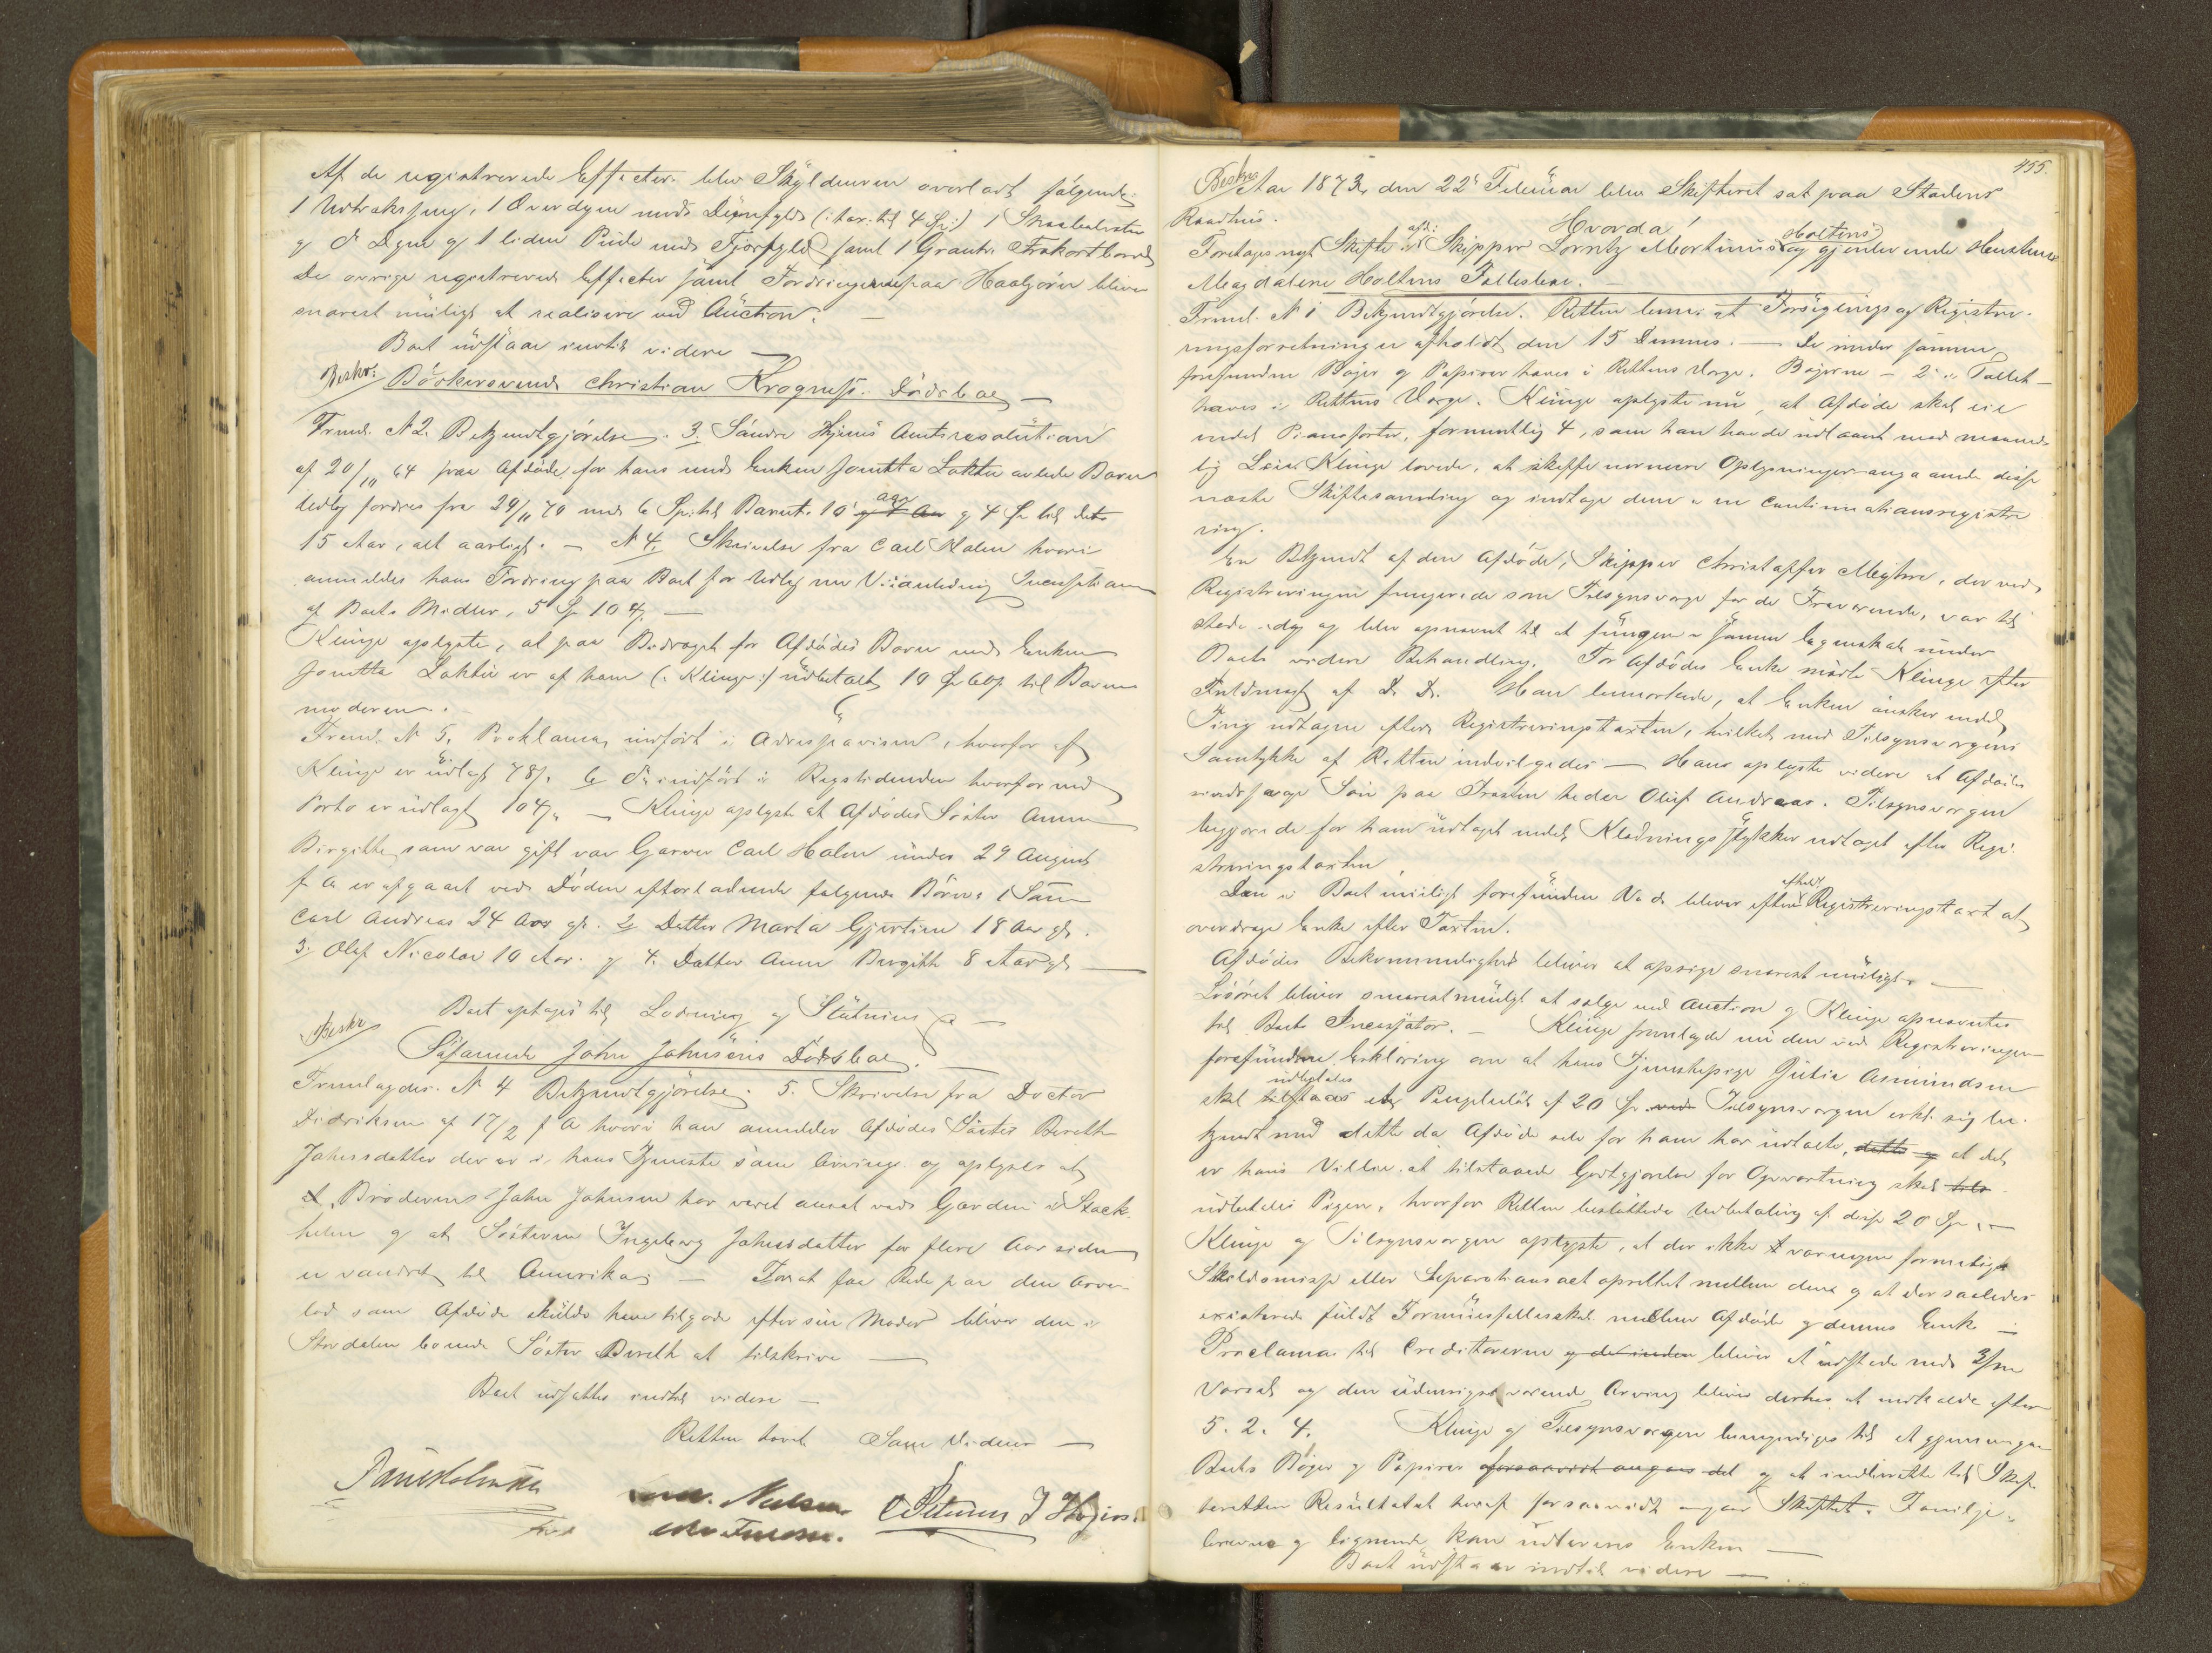 Af de registrerede Effecter blev Skyldneren overladt følgende
1 Udtræksseng, 1 Overdyne med Duunfyld (: tax. til 4 Sp :) 1
og do Dyne og 1 liden Pude med Fjærfyld samt 1
De øvrige registrerede Effecter samt Fordringerne paa bliver
snarest muligt at realisere ved Auction. —
Boet udstaar indtil videre —
Beskr. Bødkersvend Christian Krogness Dødsboe —
Fremh. No 2. Bekjendtgjørelse. 3. Søndre Amtsresolution
af 20/10 64 paa Afdøde for hans med Enken Lokter avlede Barn
fordres fra 29/11 70 med 6 Sp. til Barnet 10 og 4 Aar aar og 4 Sp til dets
15 Aar, alt aarligt. — No 4. Skrivelse fra Carl Holm hvori
anmeldes hans Fordring paa Boet for Udlæg
af Boets Midler, 5 Sp 10 ß. —
Klinge oplyste, at paa Bidraget for Afdødes Barn med Enken
Lokter er af ham (: Klinge :) udbetalt 10 Sp 60 ß til Barne
moderen. —
Fremh. No 5. Proklama, indført i Adresseavisen, hvorfor af
Klinge er udlagt 78 ß. 6 do indført i Rigstidenden hvorfor med
Porto er udlagt 104 ß. — Klinge oplyste at Afdødes Søster Anne
Birgitte, som var gift var Garver Carl Holm under 29 August
f. A. er afgaaet ved Døden efterladende følgende Børn: 1 Søn
Carl Andreas 24 Aar gl. 2 Datter Marta Gjertine 18 Aar gl.
3. Olaf Nicolai 10 Aar. og 4. Datter Anne Birgitte 8 Aar gl —
Boet optages til Lodning og Slutning —
Beskr Søfarende John Johnsens Dødsboe. —
Fremlagdes. No 4 Bekjendtgjørelse. 5. Skrivelse fra Doctor
Didriksen af 17/2 f A hvori han anmelder Afdødes Søster Bereth
Johnsdatter der er i hans Tjeneste som Arving og oplyses at
at Broderen John Johnsen har været ansat ved Garden i Stock-
holm og at Søsteren Ingeborg Johnsdatter for flere Aar siden
er vandret til Amerika; — For at faa Rede paa den Arve-
lod som Afdøde skulde have tilgode efter sin Moder bliver den i
Stordalen boende Søster Bereth at tilskrive —
Boet udsættes indtil videre —
Retten hævet Same Vidner —
Nielsen

455.
Beskr Aar 1873, den 22de Februar blev Skifteret sat paa Stadens
Raadhus. Hvorda
Foretages nyt Skifte i afd: Skipper Lorntz Mortinus Holtens og gjenlevende Hustrue
Magdalene Holtens Fællesboe. —
Fremh. No 1 Bekjendtgjørelse. Retten bem: at Forseglings og Registre-
ringsforretningen afholdt den 15 Dennes. — De under samme
forefundne Bøger og Papirer haves i Rettens Værge. Bøgerne —
haves i Rettens Værge. Klinge oplyste nu, at Afdøde skal eie
endel Pianoforter, formentlig 4, som han havde udlaant mod maaned-
lig Leie. Klinge lovede, at skaffe nærmere Oplysninger angaaende disse
næste Skiftesamling og indtage dem i en Continuationsregistre
ring.
En Bekjendt af den Afdøde, Skipper Christoffer Meyhre, der ved
Registreringen fungerede som Tilsynsværge for de Fraværende, var til
stede idag og blev opnævnt til at fungere i samme Egenskab under
Boets videre Behandling. For Afdødes Enke mødte Klinge efter
Fuldmagt af D. D. Han bemærkede, at Enken ønsker endel
Ting udtagne efter Registreringstaxten, hvilket med Tilsynsværgens
Samtykke af Retten indvilgedes — Hans oplyste videre at Afdødes
Søn paa Frasten heder Oluf Andreas. Tilsynsværgen
begjærede for ham udtaget endel Klædningsstykker udtaget efter Regi-
streringstaxten
Den i Boet muligt forefunden Ved bliver efter afholdt Registreringstaxt at
overdrage Enke efter Taxten.
Afdødes Bekvemmelighed bliver at opsige snarest muligt. —
Løsøret bliver snarest muligt at sælge ved Auction og Klinge opnævntes
til Boets Incassator. — Klinge fremlagde nu den ved Registreringen
forefundne Erklæring om at hans Tjenestepige Julie Asmundsen
skal tilstaaes udbetales et Pengebeløb af 20 Sp. med Tilsynsværgen erkl. sig be-
kjendt med dette da Afdøde selv for ham har udtalt, dette og at det
er hans Villie at tilstaaede Godtgjørelse for Opvartning skal tils
udbetales Pigen, hvorfor Retten besluttede Udbetaling af disse 20 Sp. —
Klinge og Tilsynsværgen oplyste, at der ikke var nogen formelig
Skilsmisse eller Separationsact oprettet mellem dem og at der saaledes
existerede fuldt Formuesfællesskab mellem Afdøde og dennes Enke —
Proclama til Creditorerne og det inden bliver at udstede med 3/m
Varsel og den udenrigs værende Arving bliver derhos at indkalde efter
5. 2. 4. Klinge og Tilsynsværgen bemyndiges til at gjennemgaa
Boets Bøger og Papirer forsaavidt angaar det og at indberette til Skif-
teretten Resultatet heraf forsaavidt angaar Skiftet. Familje-
brevene og lignende kan udleveres Enken —
Boet udstaar indtil videre —